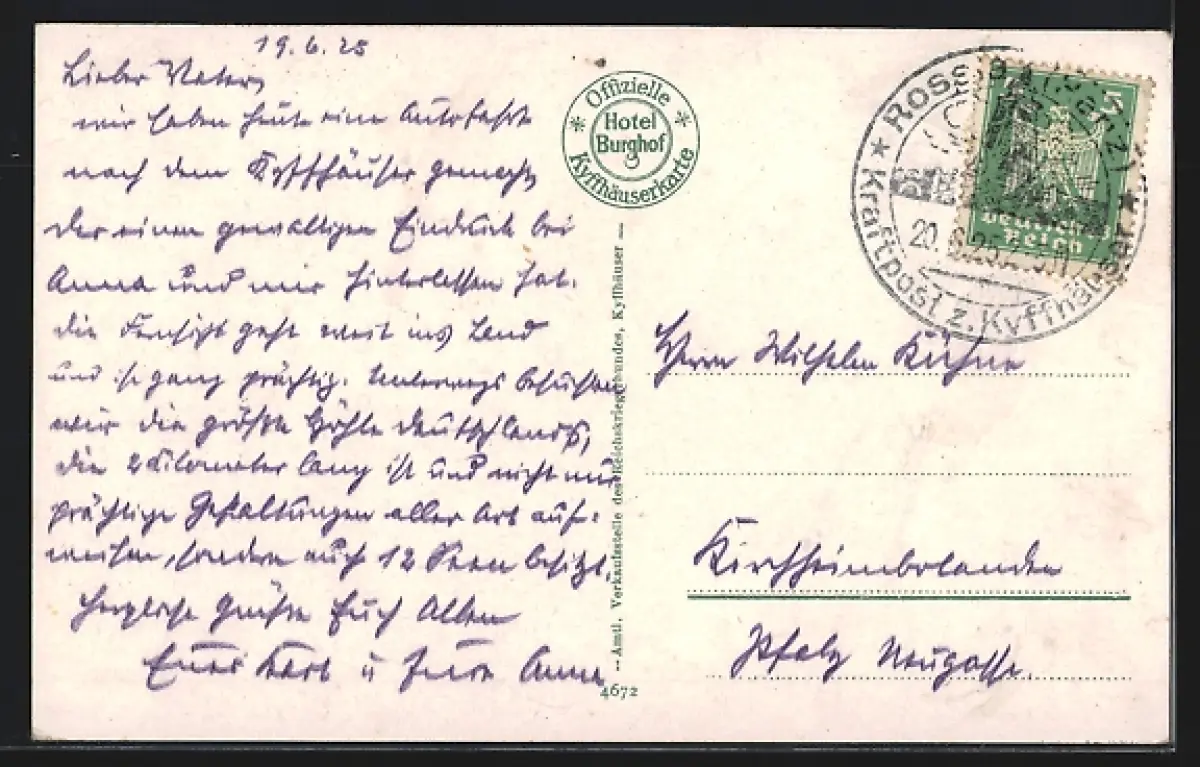 19.6.25
Lieber Vater,
wir haben heute eine Autofahrt
nach dem Kyffhäuser gemacht,
der einen gewaltigen Eindruck bei
Anna und mir hinterlassen hat.
die Fernsicht geht weit ins Land
und ist ganz prächtig. Unterwegs besuchten
wir die größte Höhle Deutschlands,
die 2 Kilometer lang ist und nicht nur
prächtige Gestaltungen aller Art auf-
weisen, sondern auch 12 Seen besitzt.
Herzliche Grüße Euch Allen
Euer u Anna
Offizielle
Hotel
Burghof
Kyffhäuserkarte
Amtl. Verkaufsstelle des Reichskriegerbundes, Kyffhäuser
4672
ROSS
20.6.25
Kraftpost z. Kyffhäuser
5
Deutsches
Reich
Herrn Wilhelm Kühne
Kirchheimbolanden
Pfalz Neugasse.